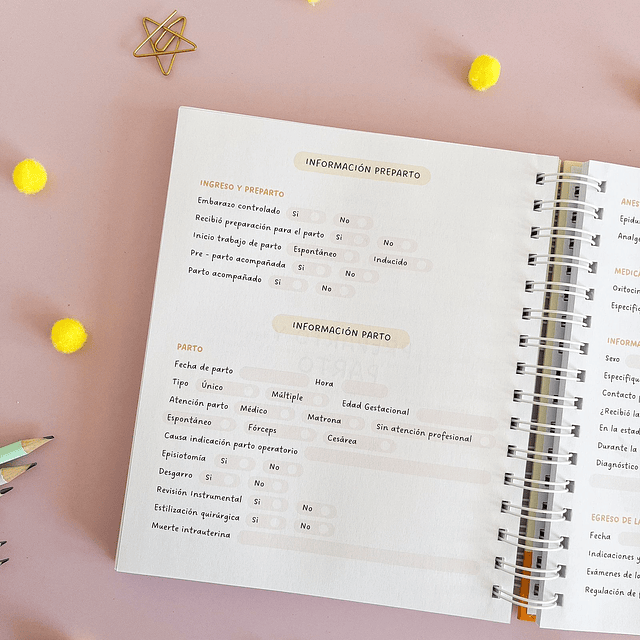 INFORMACIÓN PREPARTO
INGRESO Y PREPARTO
Embarazo controlado Si No
Recibió preparación para el parto Si No
Inicio trabajo de parto Espontáneo Inducido
Pre - parto acompañada Si No
Parto acompañado Si No
INFORMACIÓN PARTO
PARTO
Fecha de parto Hora
Tipo Único Múltiple Edad Gestacional
Atención parto Médico Matrona Sin atención profesional
Espontáneo Fórceps Cesárea
Causa indicación parto operatorio
Episiotomía Si No
Desgarro Si No
Revisión Instrumental Si No
Estilización quirúrgica Si No
Muerte intrauterina
ANES
Epidu
Analge
MEDICA
Oxitocin
Especifi
INFORMA
Sexo
Especifiqu
Contacto
¿Recibió la
En la estad
Durante la
Diagnóstico
EGRESO DE LA
Fecha
Indicaciones y
Exámenes de lo
Regulación de